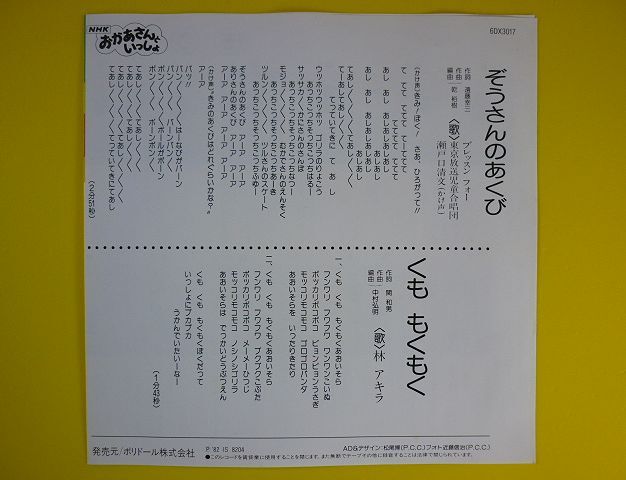 NHK
おかあさんと
いっしょ
6DX3017
ぞうさんのあくび
作詞 遠藤幸三
作曲
編曲 乾 裕樹
〈歌〉
ブレッスン フォー
東京放送児童合唱団
瀬戸口清文(かけ声)
〈かけ声〉きみ!ぼく! さあ、ひろがって!!
て てて ててて てーててて
てて ててて
あし あし あしあしあしあし
あしあし
てあし
ウッホウッホッ ゴリラのりょこう
あっちこっちそっちこっちはるー
サッサカ かにさんのさんぽ
あっちこっちそっちこっちなつー
モジョ むかでさんのえんそく
あっちこっちそっちこっちあーき
ツルンノ ツルさんのスケート
あっちこっちそっちこっちふゆー
ぞうさんのあくび アーア アーア
ありさんのあくび アーア アーア
アーア アーア アーア
〈かけ声〉"きみのあくびはどれくらいかな?"
アーア
パッ!!
(2分51秒)
くも もくもく
作詞 関 和男
作曲
編曲 中村弘明
〈歌〉林 アキラ
一、くも くも もくもくあおいそら
フンワリ フワフワ ワンワンこいぬ
ポッカリポコポコ ピョンピョンうさぎ
モッコリモコモコ ゴロゴロパンダ
あおいそらを いったりきたり
二、くも くも もくもくあおいそら
フンワリ フワフワ ブクブクこぶた
ポッカリポコポコ メーメーひつじ
モッコリモコモコ ノシノシゴリラ
あおいそらは でっかいどうぶつえん
くも くも もくもくぼくだって
いっしょにプカプカ
うかんでいたいなー
(1分43秒)
発売元/ポリドール株式会社
P '82 IS 8204
AD&デザイン:松尾博(P.C.C.)フォト近藤信治(P.C.C.)
●このレコードを賃貸業に使用することを禁じます。また無断でテープその他に録音することは法律で禁じられています。